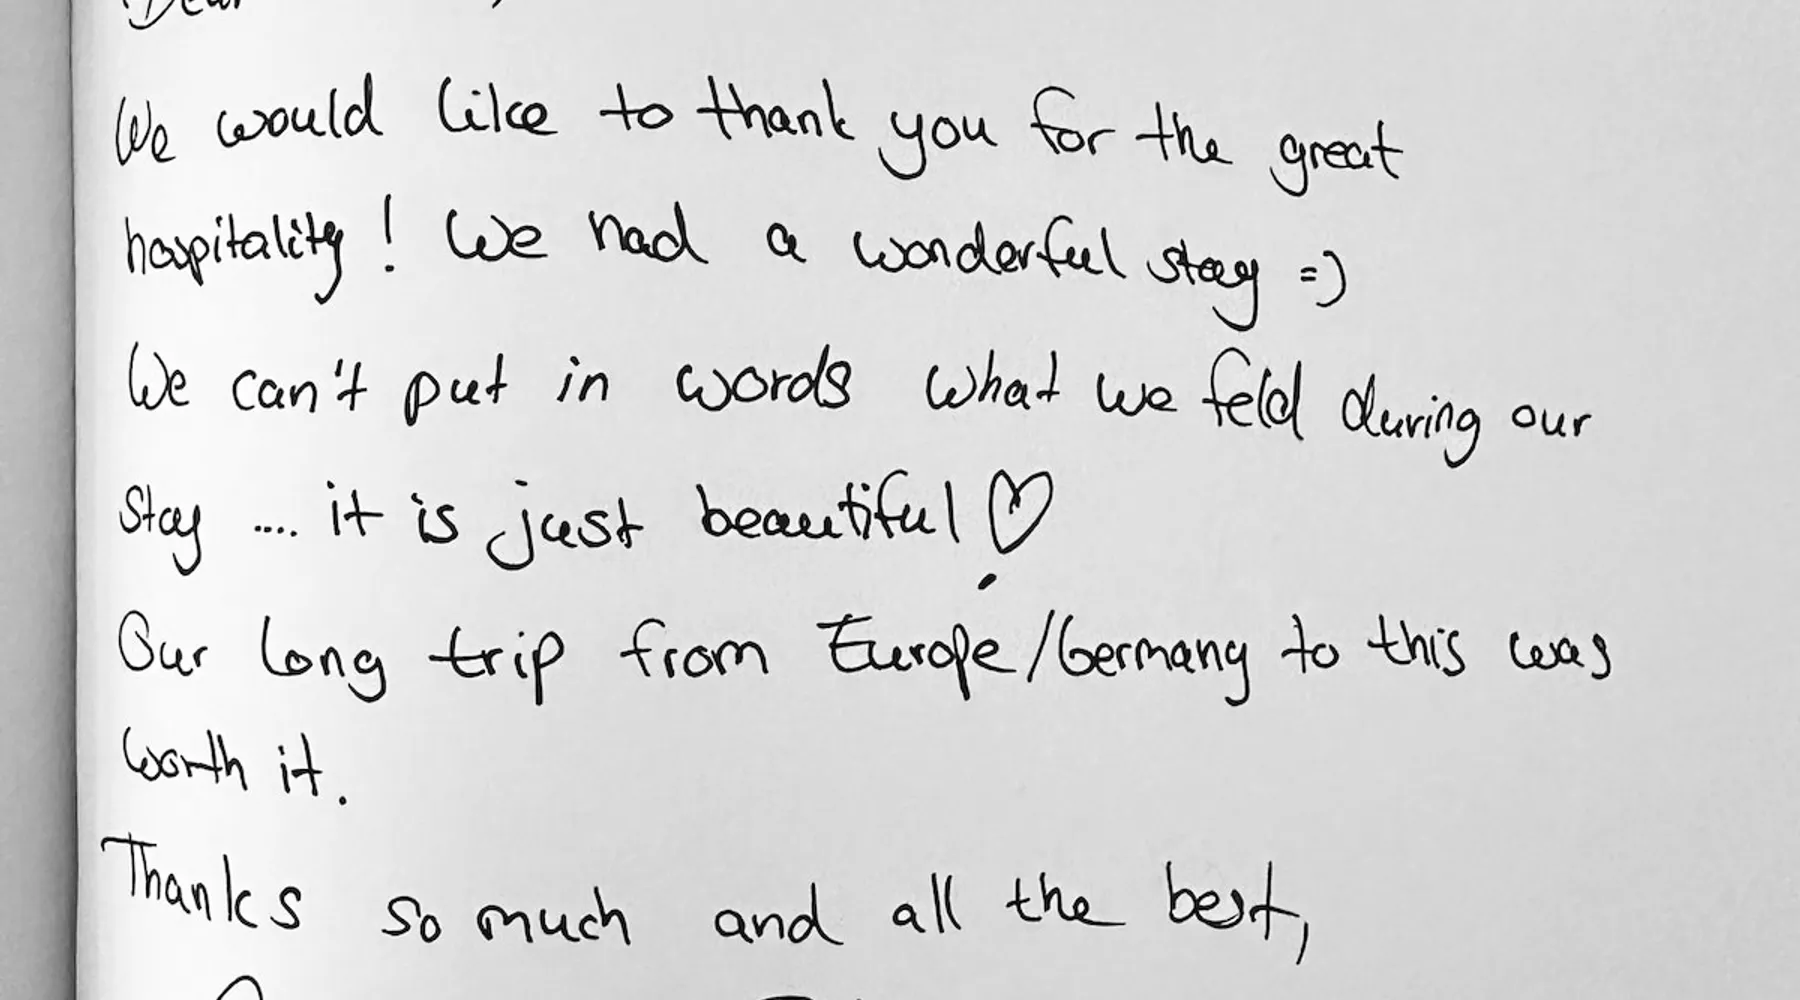 Dear
We would like to thank you for the great
hospitality! We had a wonderful stay =)
We can't put in words what we feld during our
stay .... it is just beautiful ♡
Our long trip from Europe/Germany to this was
worth it.
Thanks so much and all the best,